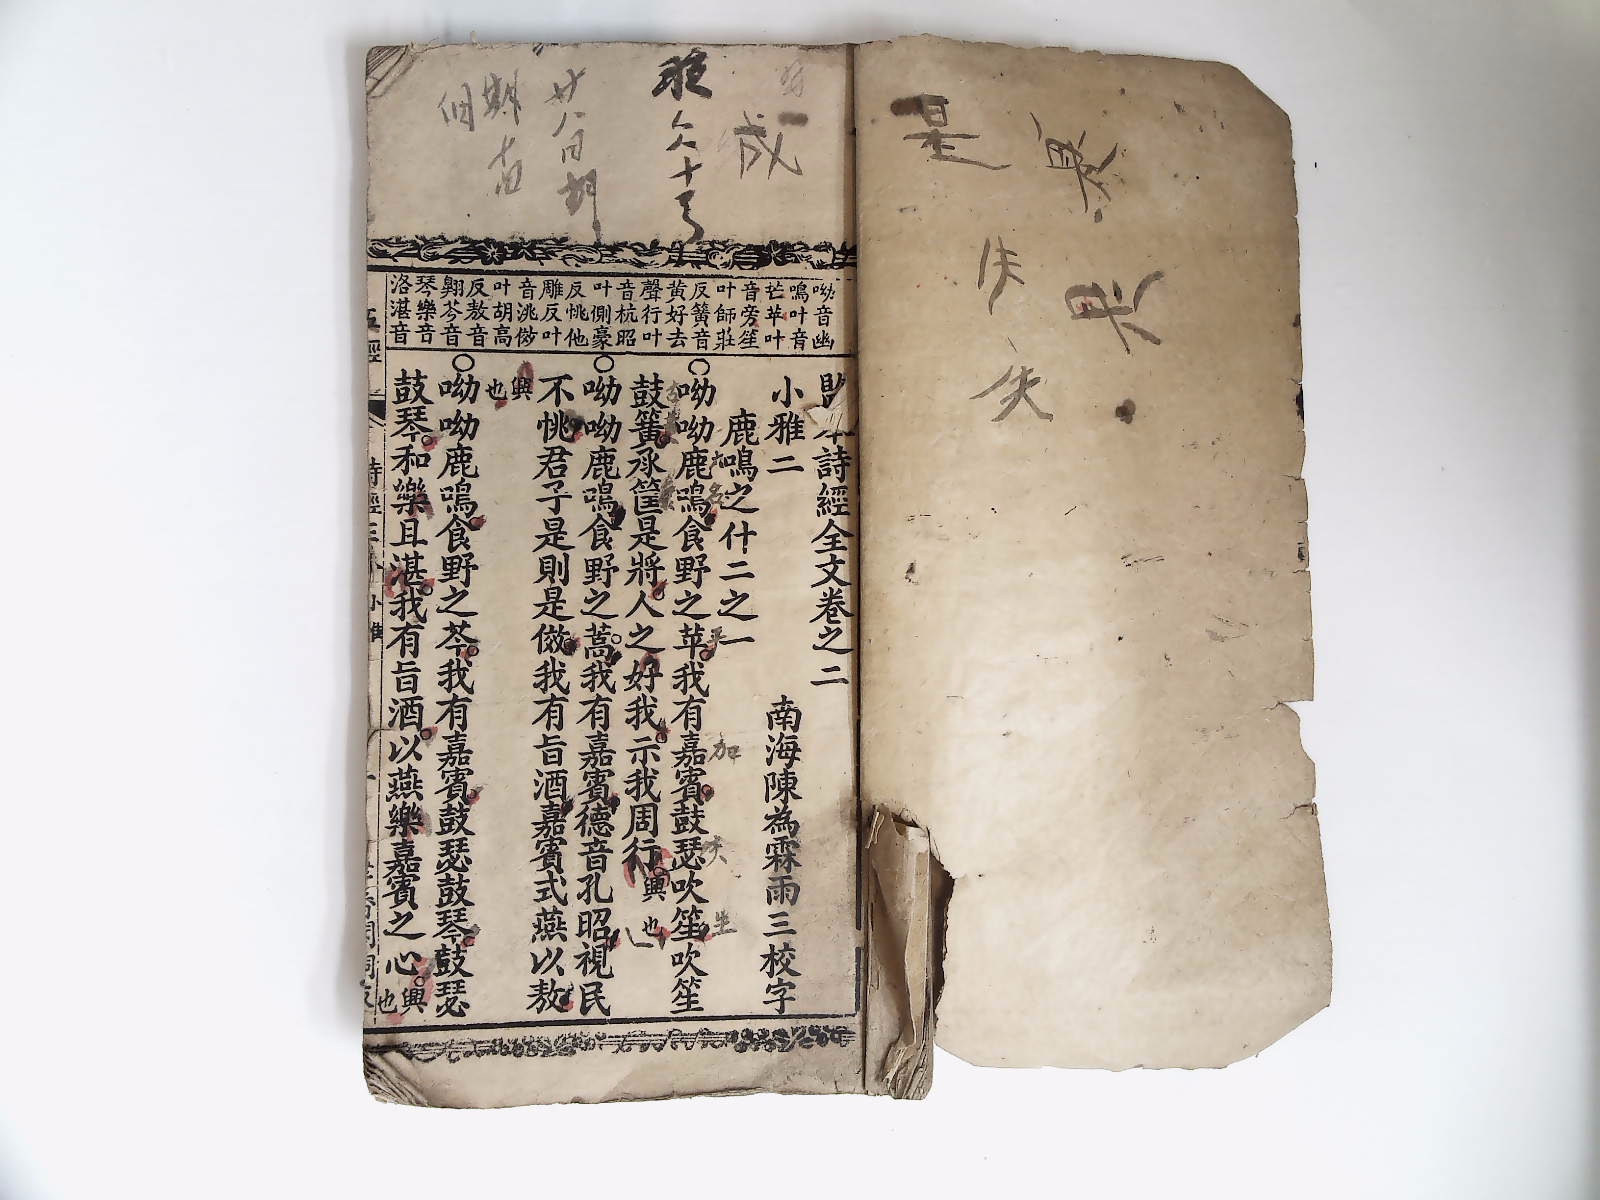 是
失
呦音幽
鳴叶音
芒苹叶
音旁笙
叶師莊
反簧音
黄好去
聲行叶
音杭昭
叶側豪
反恌他
雕反叶
音洮傚
叶胡高
反敖音
翺芩音
琴樂音
洛湛音
本詩經全文卷之二
小雅二
南海陳為霖雨三校字
鹿鳴之什二之一
○呦呦鹿鳴食野之苹我有嘉賓鼓瑟吹笙吹笙
鼓簧承筐是將人之好我示我周行興也
○呦呦鹿鳴食野之蒿我有嘉賓德音孔昭視民
不恌君子是則是傚我有旨酒嘉賓式燕以敖
興也
○呦呦鹿鳴食野之芩我有嘉賓鼓瑟鼓琴鼓瑟
鼓琴和樂且湛我有旨酒以燕樂嘉賓之心興也
五經
詩經
小雅
成
廿八日